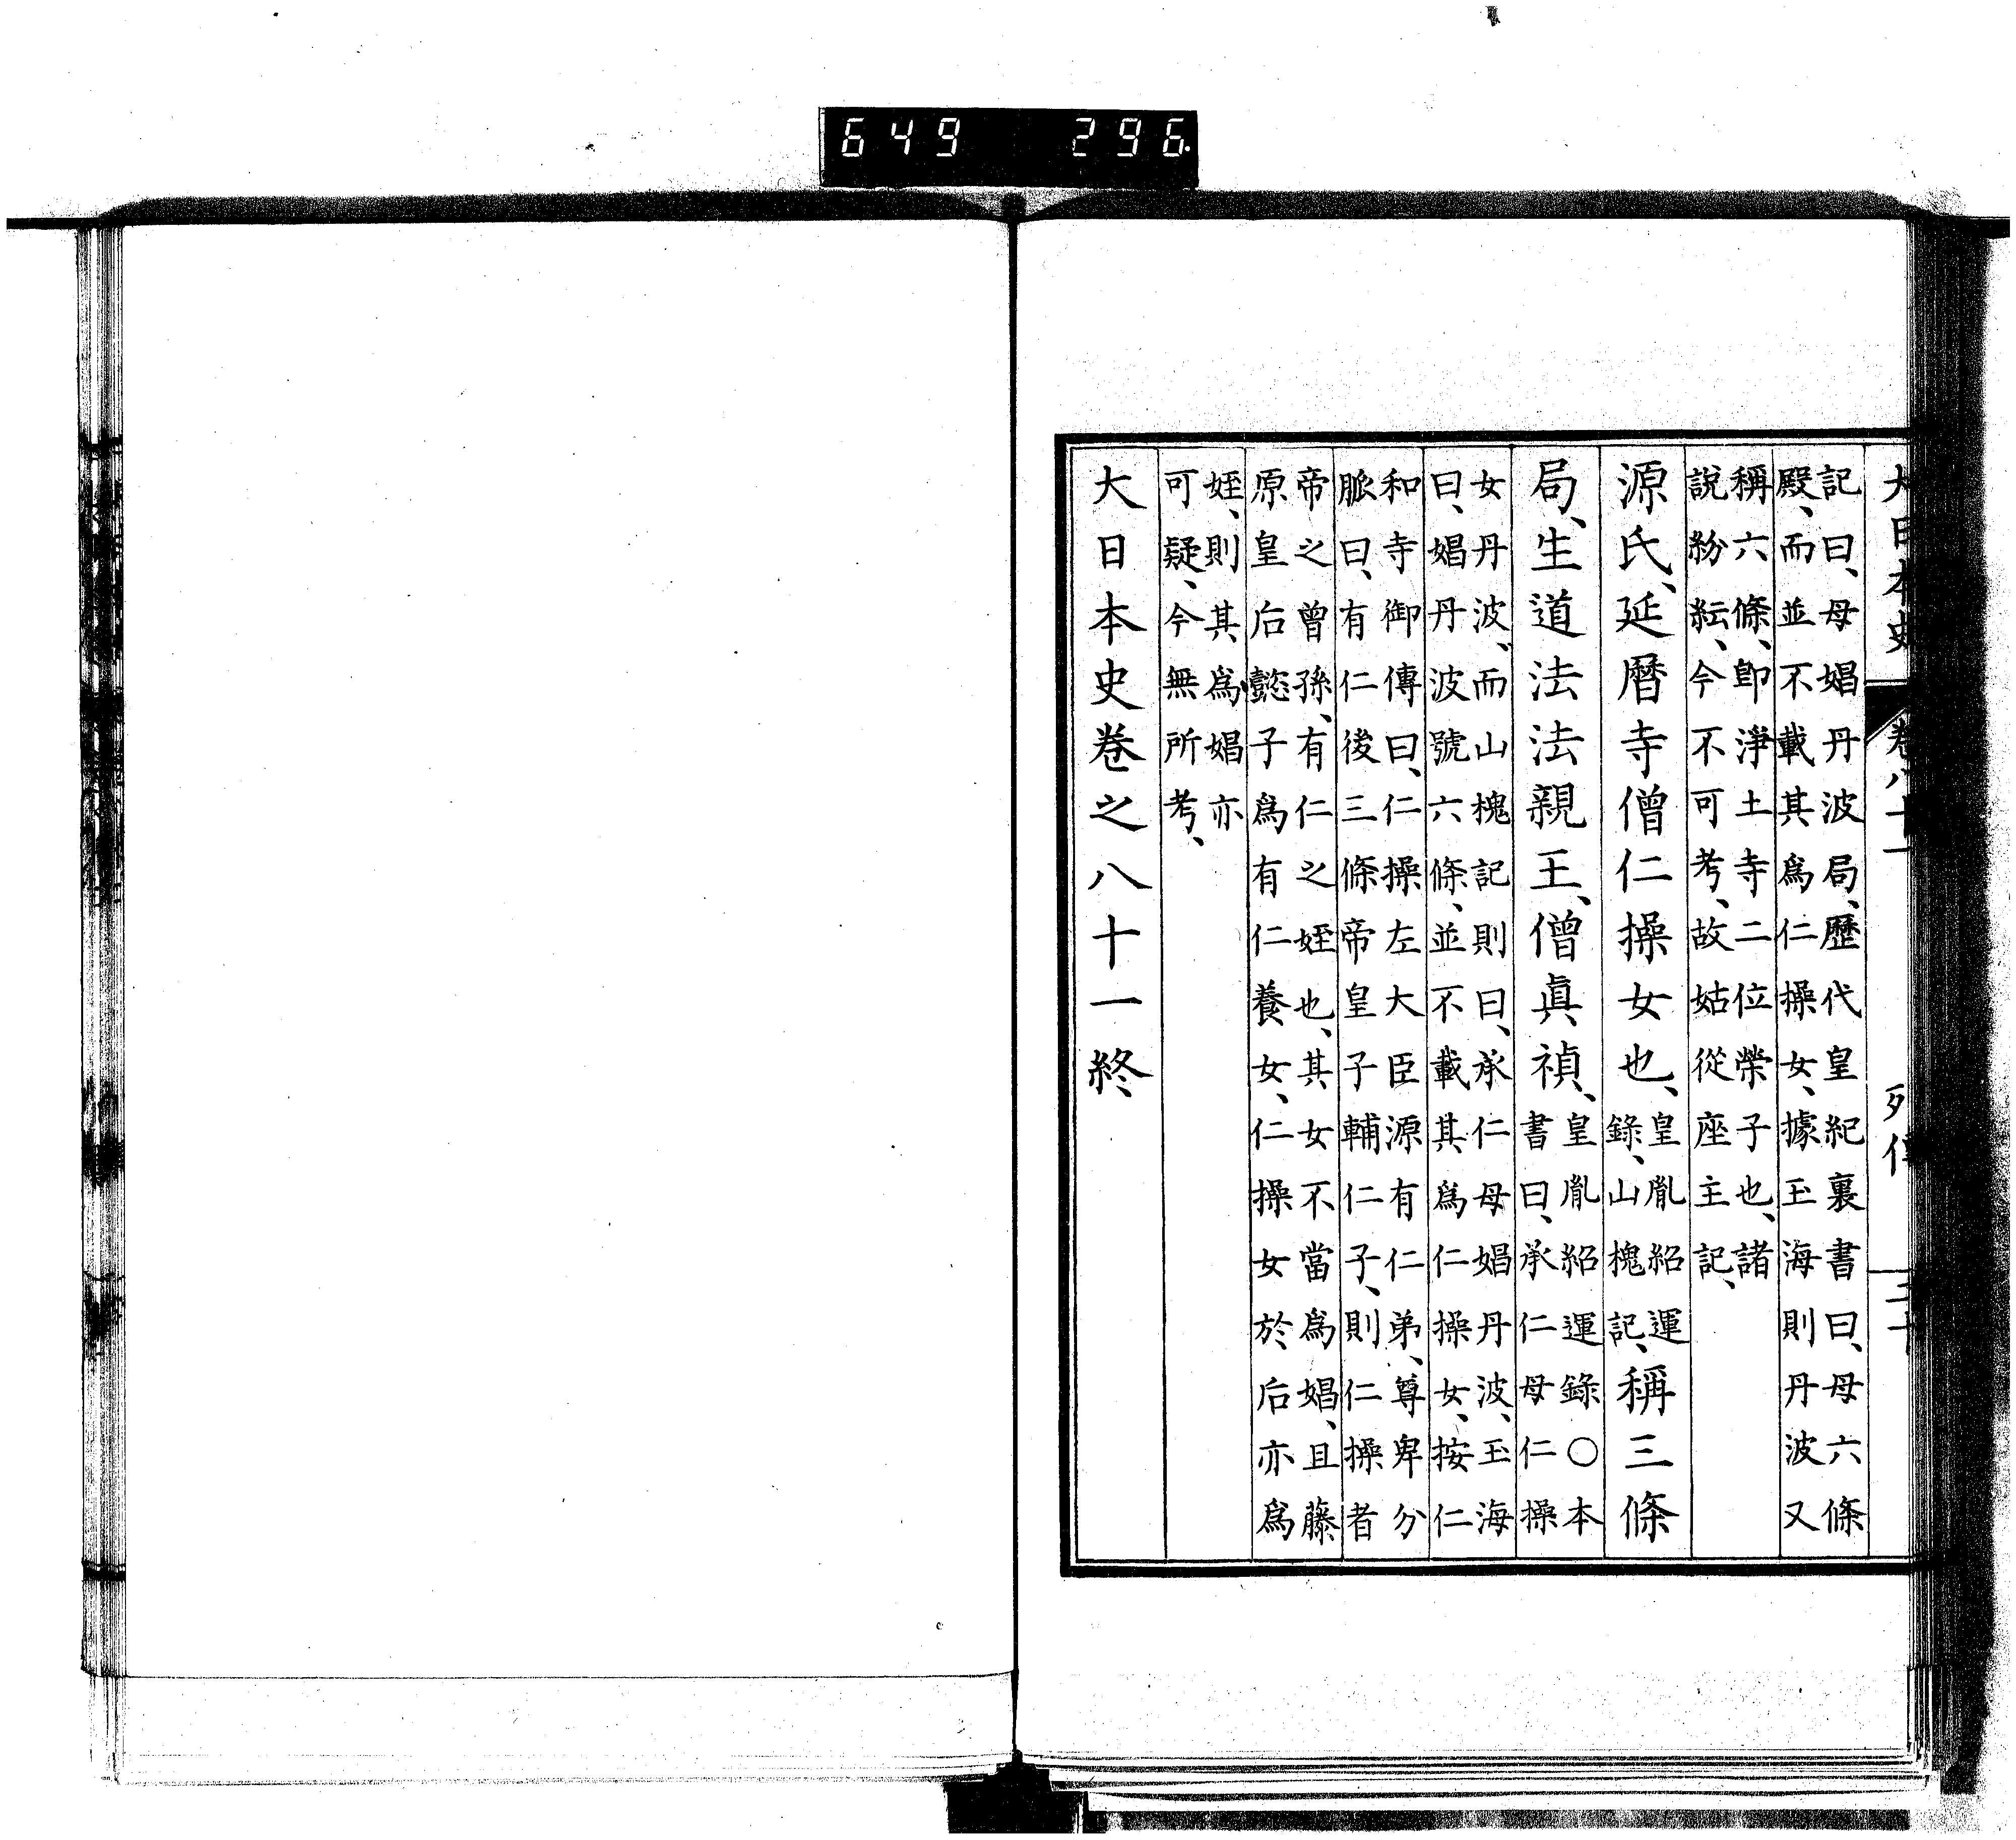 649 296
大日本史 卷八十一 列傳
記曰、母娼丹波局、歷代皇紀裏書曰、母六條
殿、而並不載其爲仁操女、據玉海則丹波又
稱六條、卽淨土寺二位榮子也、諸
說紛紜、今不可考、故姑從座主記、
源氏、延曆寺僧仁操女也、皇胤紹運錄、山槐記、稱三條
局、生道法法親王、僧眞禎、皇胤紹運錄○本
書曰、承仁母仁操
女丹波、而山槐記則曰、承仁母娼丹波、玉海
曰、娼丹波號六條、並不載其爲仁操女、按仁
和寺御傳曰、仁操左大臣源有仁弟、尊卑分
脈曰、有仁後三條帝皇子輔仁子、則仁操者
帝之曾孫、有仁之姪也、其女不當爲娼、且藤
原皇后懿子爲有仁養女、仁操女於后亦爲
姪、則其爲娼亦
可疑、今無所考、
大日本史卷之八十一終